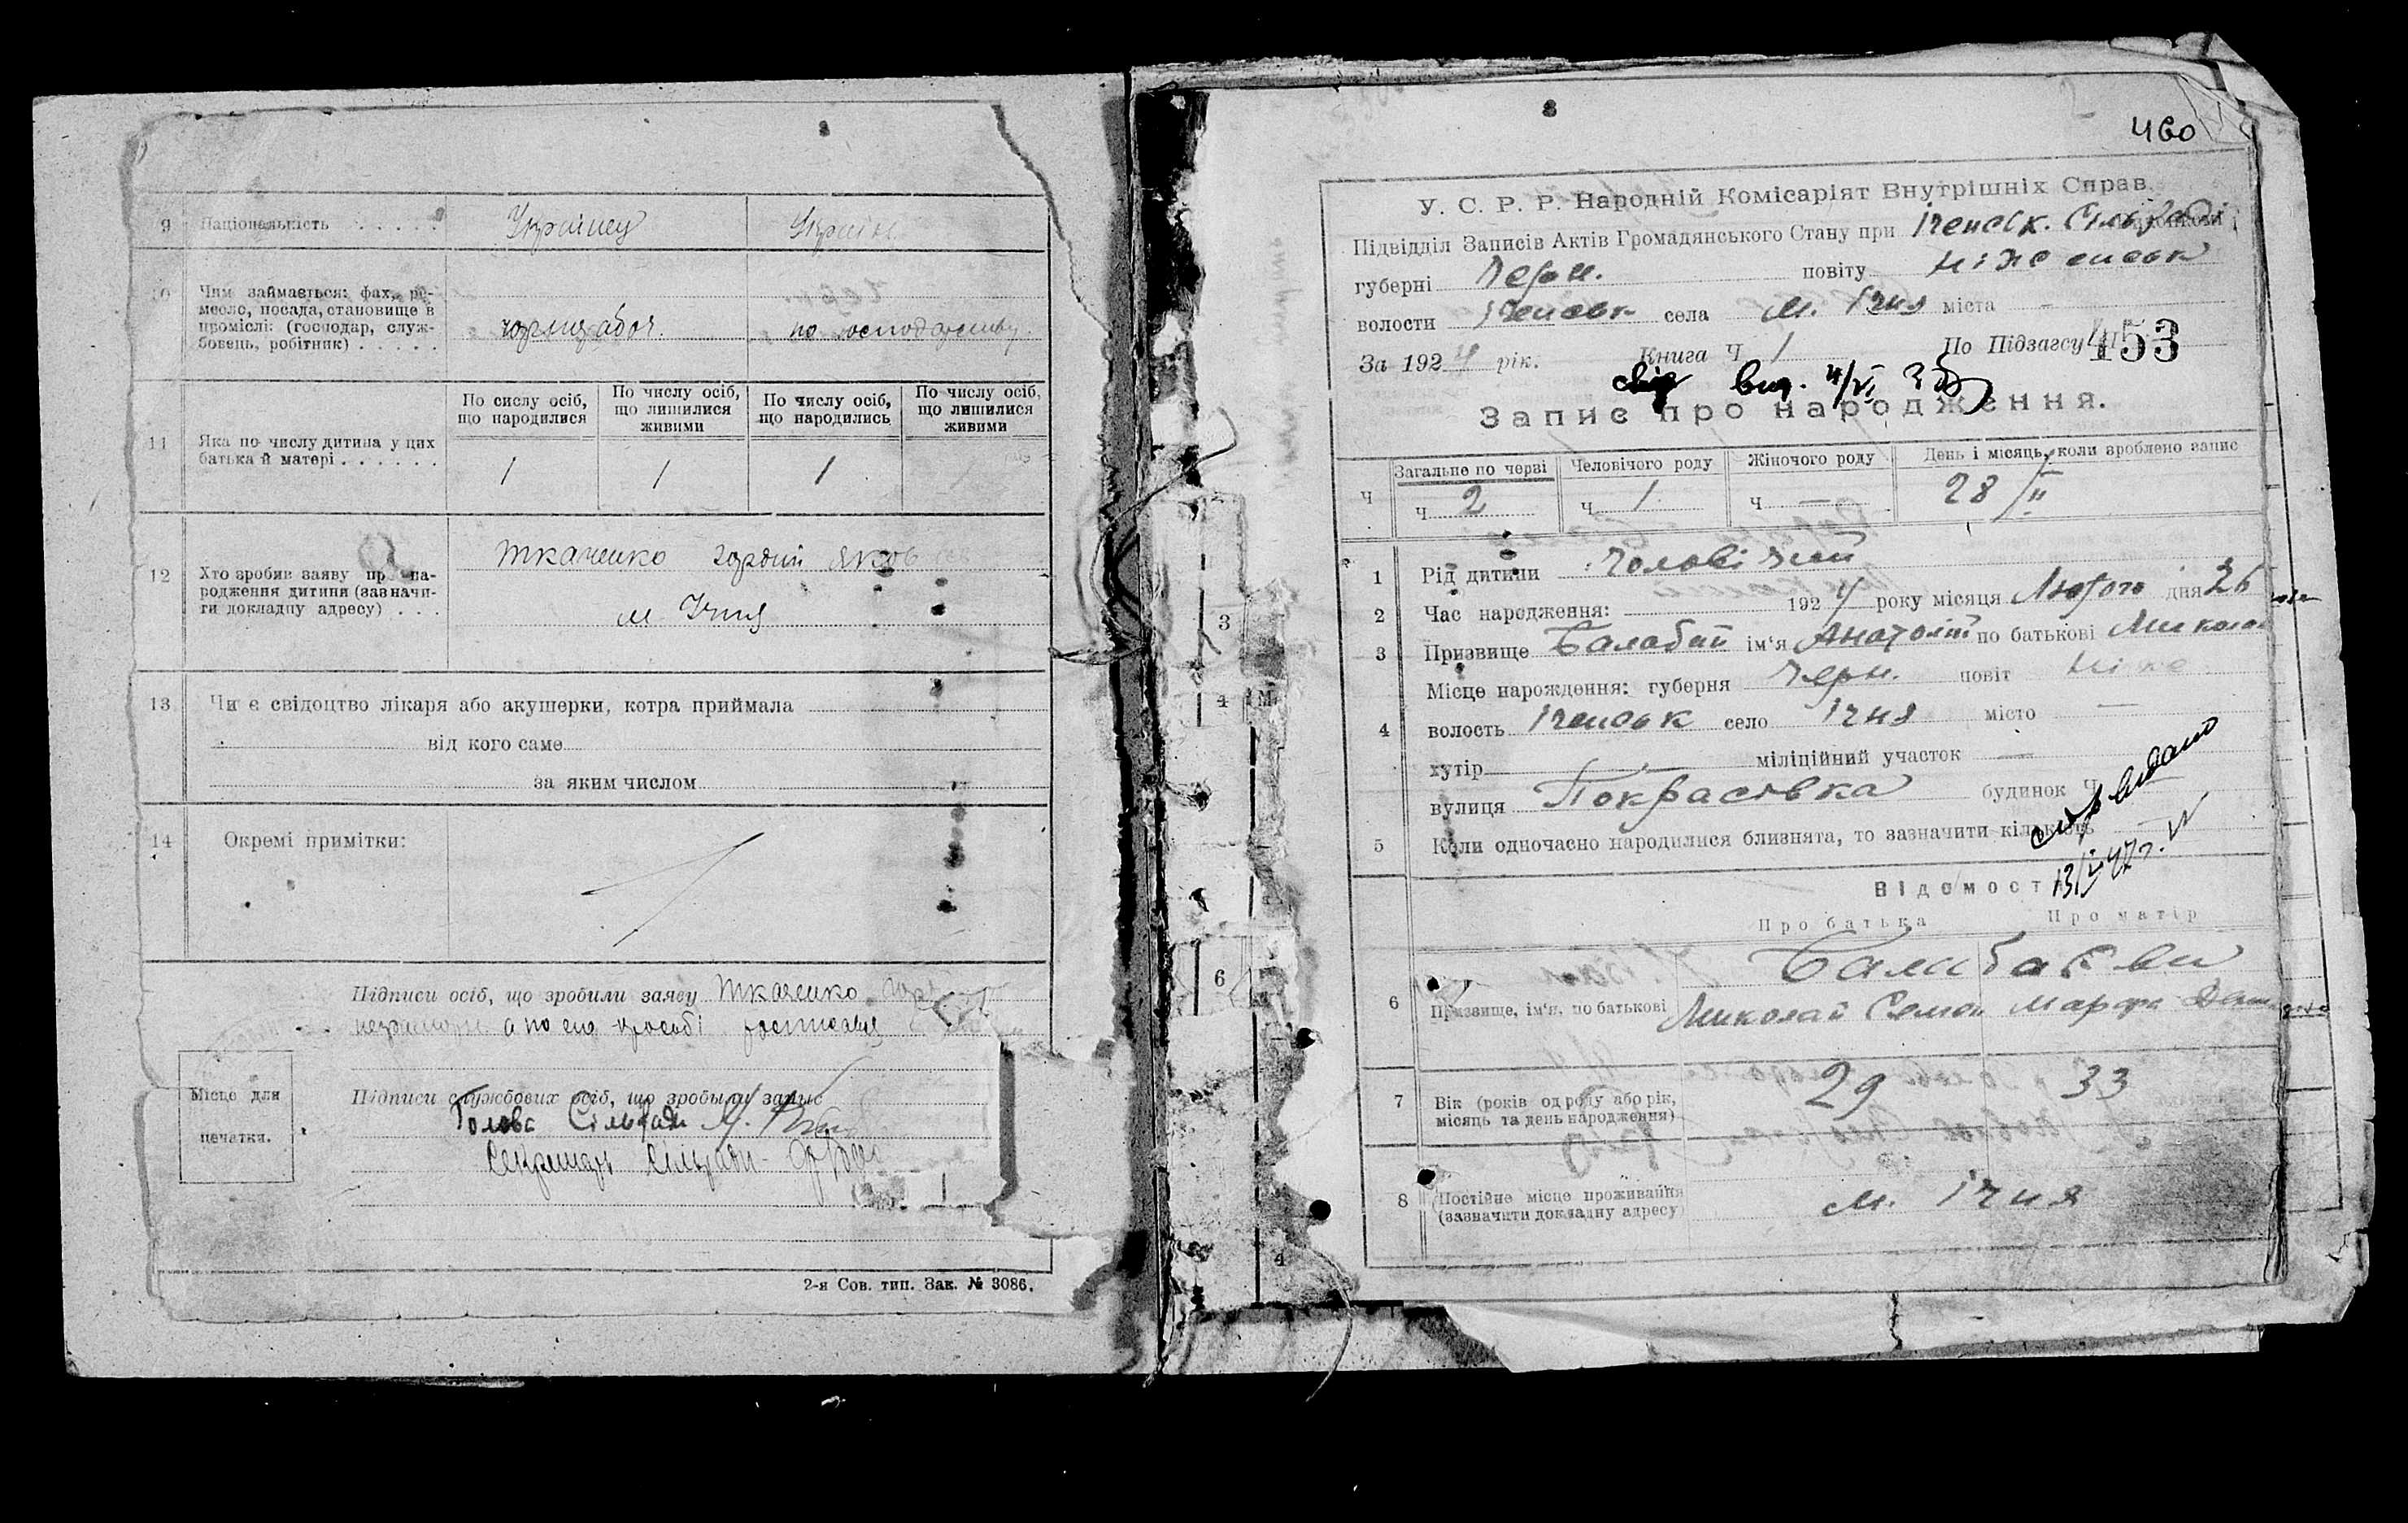 9 Національність Українец Україн
10 Чим займається: фах, ре-
месло, посада, становище в
промислі: (господар, служ-
бовець, робітник) по господарству
11 Яка по числу дитина у цих
батька й матері
По сислу осіб,
що народилися
По числу осіб,
що лишилися
живими
По числу осіб,
що народились
По числу осіб,
що лишилися
живими
1 1 1
12 Хто зробив заяву про на-
родження дитини (зазначи-
ти докладну адресу)
Ткаченко Гордий Яков
м Ічня
13 Чи є свідоцтво лікаря або акушерки, котра приймала
від кого саме
за яким числом
14 Окремі примітки:
Підписи осіб, що зробили заяву Ткаченко
а по его просьбі росписався
Місце для
печатки.
Підписи службових осіб, що зробили запис
Голова Сільради
Секретарь Сільради
2-я Сов. тип. Зак. № 3086.
3
4 М
6
4
460
У. С. Р. Р. Народній Комісаріят Внутрішніх Справ.
Підвідділ Записів Актів Громадянського Стану при Іченськ. Сільраді
губерні Черн. повіту Ніженськ
волости Іченськ села м. Ічня міста —
За 1924 рік. Книга Ч 1 По Підзагсу 453
Запис про народження.
Ч
Загальне по черзі Человічого роду Жіночого роду День і місяць, коли зроблено запис
Ч 2 Ч 1 Ч — 28/II
1 Рід дитини чоловічий
2 Час народження: 1924 року місяця Лютого дня 26
3 Призвище Балабай ім'я Анатолій по батькові Микола
4 Місце нарождення: губерня Черн. повіт Ніже
волость Іченськ село Ічня місто —
хутір — міліційний участок —
вулиця Покрасівка будинок Ч
5 Коли одночасно народилися близнята, то зазначити кількість
Відомості
Про батька Про матір
6 Призвище, ім'я, по батькові
Балабаєви
Миколай Семен Марфа
7 Вік (років од роду або рік,
місяць та день народження) 29 33
8 Постійне місце проживання
(зазначити докладну адресу) м. Ічня